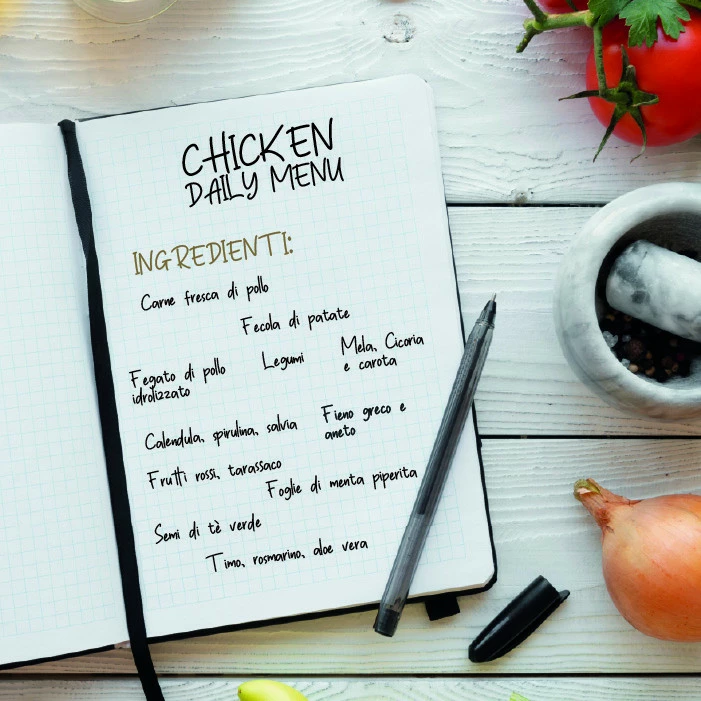 CHICKEN
DAILY MENU
INGREDIENTI:
Carne fresca di pollo
Fecola di patate
Fegato di pollo
idrolizzato
Legumi
Mela, Cicoria
e carota
Calendula, spirulina, salvia
Fieno greco e
aneto
Frutti rossi, tarassaco
Foglie di menta piperita
Semi di tè verde
Timo, rosmarino, aloe vera